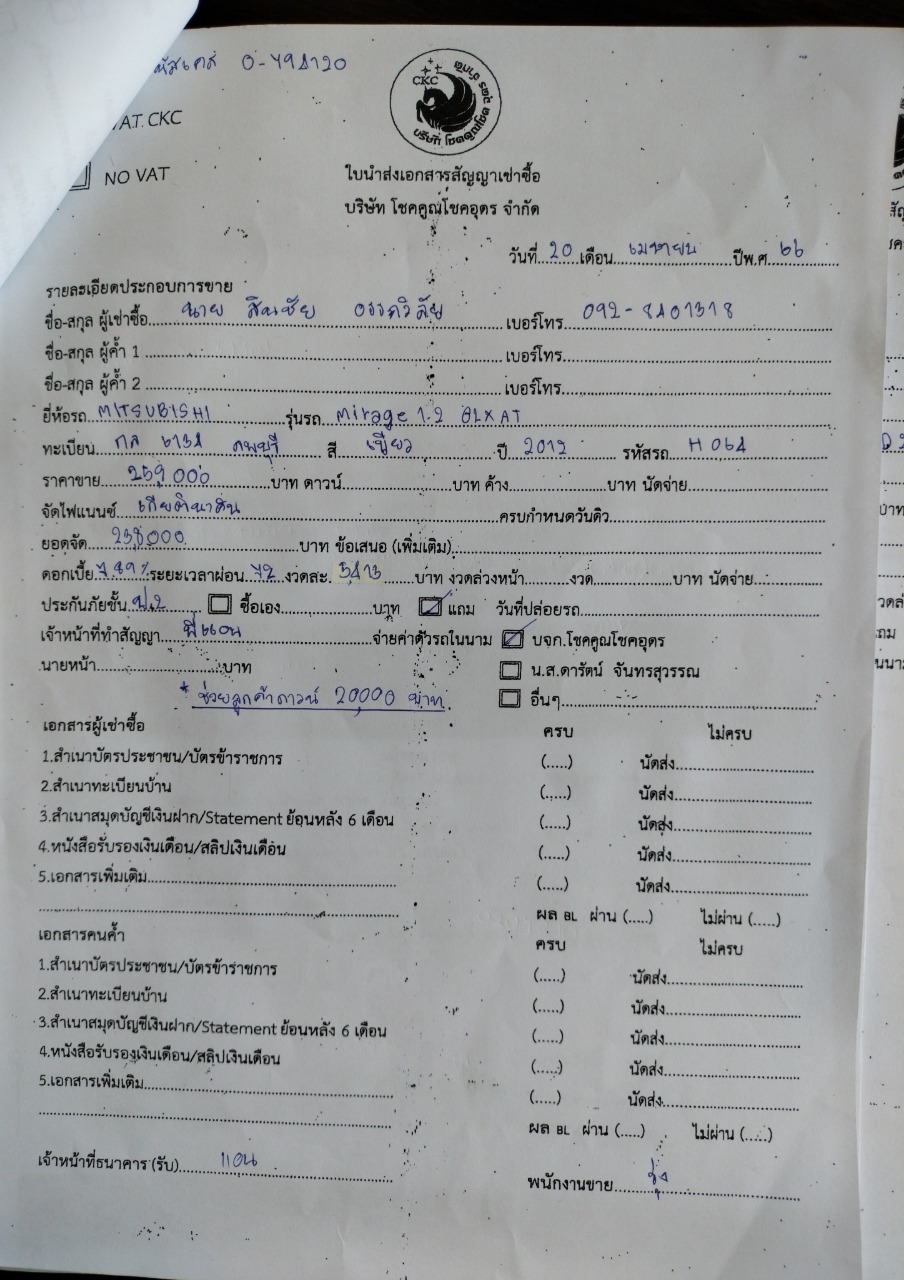 รหัสเคส 0-494120
VAT. CKC
CKC
บริษัท โชคคูณโชค อุดร จำกัด
NO VAT
ใบนำส่งเอกสารสัญญาเช่าซื้อ
บริษัท โชคคูณโชคอุดร จำกัด
วันที่ 20 เดือน เมษายน ปีพ.ศ. 66
รายละเอียดประกอบการขาย
ชื่อ-สกุล ผู้เช่าซื้อ นาย สินชัย เบอร์โทร. 092-8401318
ชื่อ-สกุล ผู้ค้ำ 1 เบอร์โทร.
ชื่อ-สกุล ผู้ค้ำ 2 เบอร์โทร.
ยี่ห้อรถ MITSUBISHI รุ่นรถ Mirage 1.2 GLX AT
ทะเบียน กล 6134 ลพบุรี สี เขียว ปี 2012 รหัสรถ H 064
ราคาขาย 259,000 บาท ดาวน์ บาท ค้าง บาท นัดจ่าย
จัดไฟแนนซ์ เกียรตินาคิน ครบกำหนดวันดิว
ยอดจัด 258,000 บาท ข้อเสนอ (เพิ่มเติม)
ดอกเบี้ย 7.89% ระยะเวลาผ่อน 72 งวดละ 5413 บาท งวดล่วงหน้า งวด บาท นัดจ่าย
ประกันภัยชั้น ป.2 ซื้อเอง บาท แถม วันที่ปล่อยรถ
เจ้าหน้าที่ทำสัญญา พี่แอน จ่ายค่าตัวรถในนาม บจก.โชคคูณโชคอุดร
นายหน้า บาท น.ส.ดารัตน์ จันทรสุวรรณ
* ช่วยลูกค้าดาวน์ 20,000 บาท. อื่นๆ
เอกสารผู้เช่าซื้อ ครบ ไม่ครบ
1.สำเนาบัตรประชาชน/บัตรข้าราชการ (.....) นัดส่ง
2.สำเนาทะเบียนบ้าน (.....) นัดส่ง
3.สำเนาสมุดบัญชีเงินฝาก/Statement ย้อนหลัง 6 เดือน (.....) นัดส่ง
4.หนังสือรับรองเงินเดือน/สลิปเงินเดือน (.....) นัดส่ง
5.เอกสารเพิ่มเติม (.....) นัดส่ง
ผล BL ผ่าน (.....) ไม่ผ่าน (.....)
เอกสารคนค้ำ ครบ ไม่ครบ
1.สำเนาบัตรประชาชน/บัตรข้าราชการ (.....) นัดส่ง
2.สำเนาทะเบียนบ้าน (.....) นัดส่ง
3.สำเนาสมุดบัญชีเงินฝาก/Statement ย้อนหลัง 6 เดือน (.....) นัดส่ง
4.หนังสือรับรองเงินเดือน/สลิปเงินเดือน (.....) นัดส่ง
5.เอกสารเพิ่มเติม (.....) นัดส่ง
ผล BL ผ่าน (.....) ไม่ผ่าน (.....)
เจ้าหน้าที่ธนาคาร (รับ) แอน พนักงานขาย รุ่ง